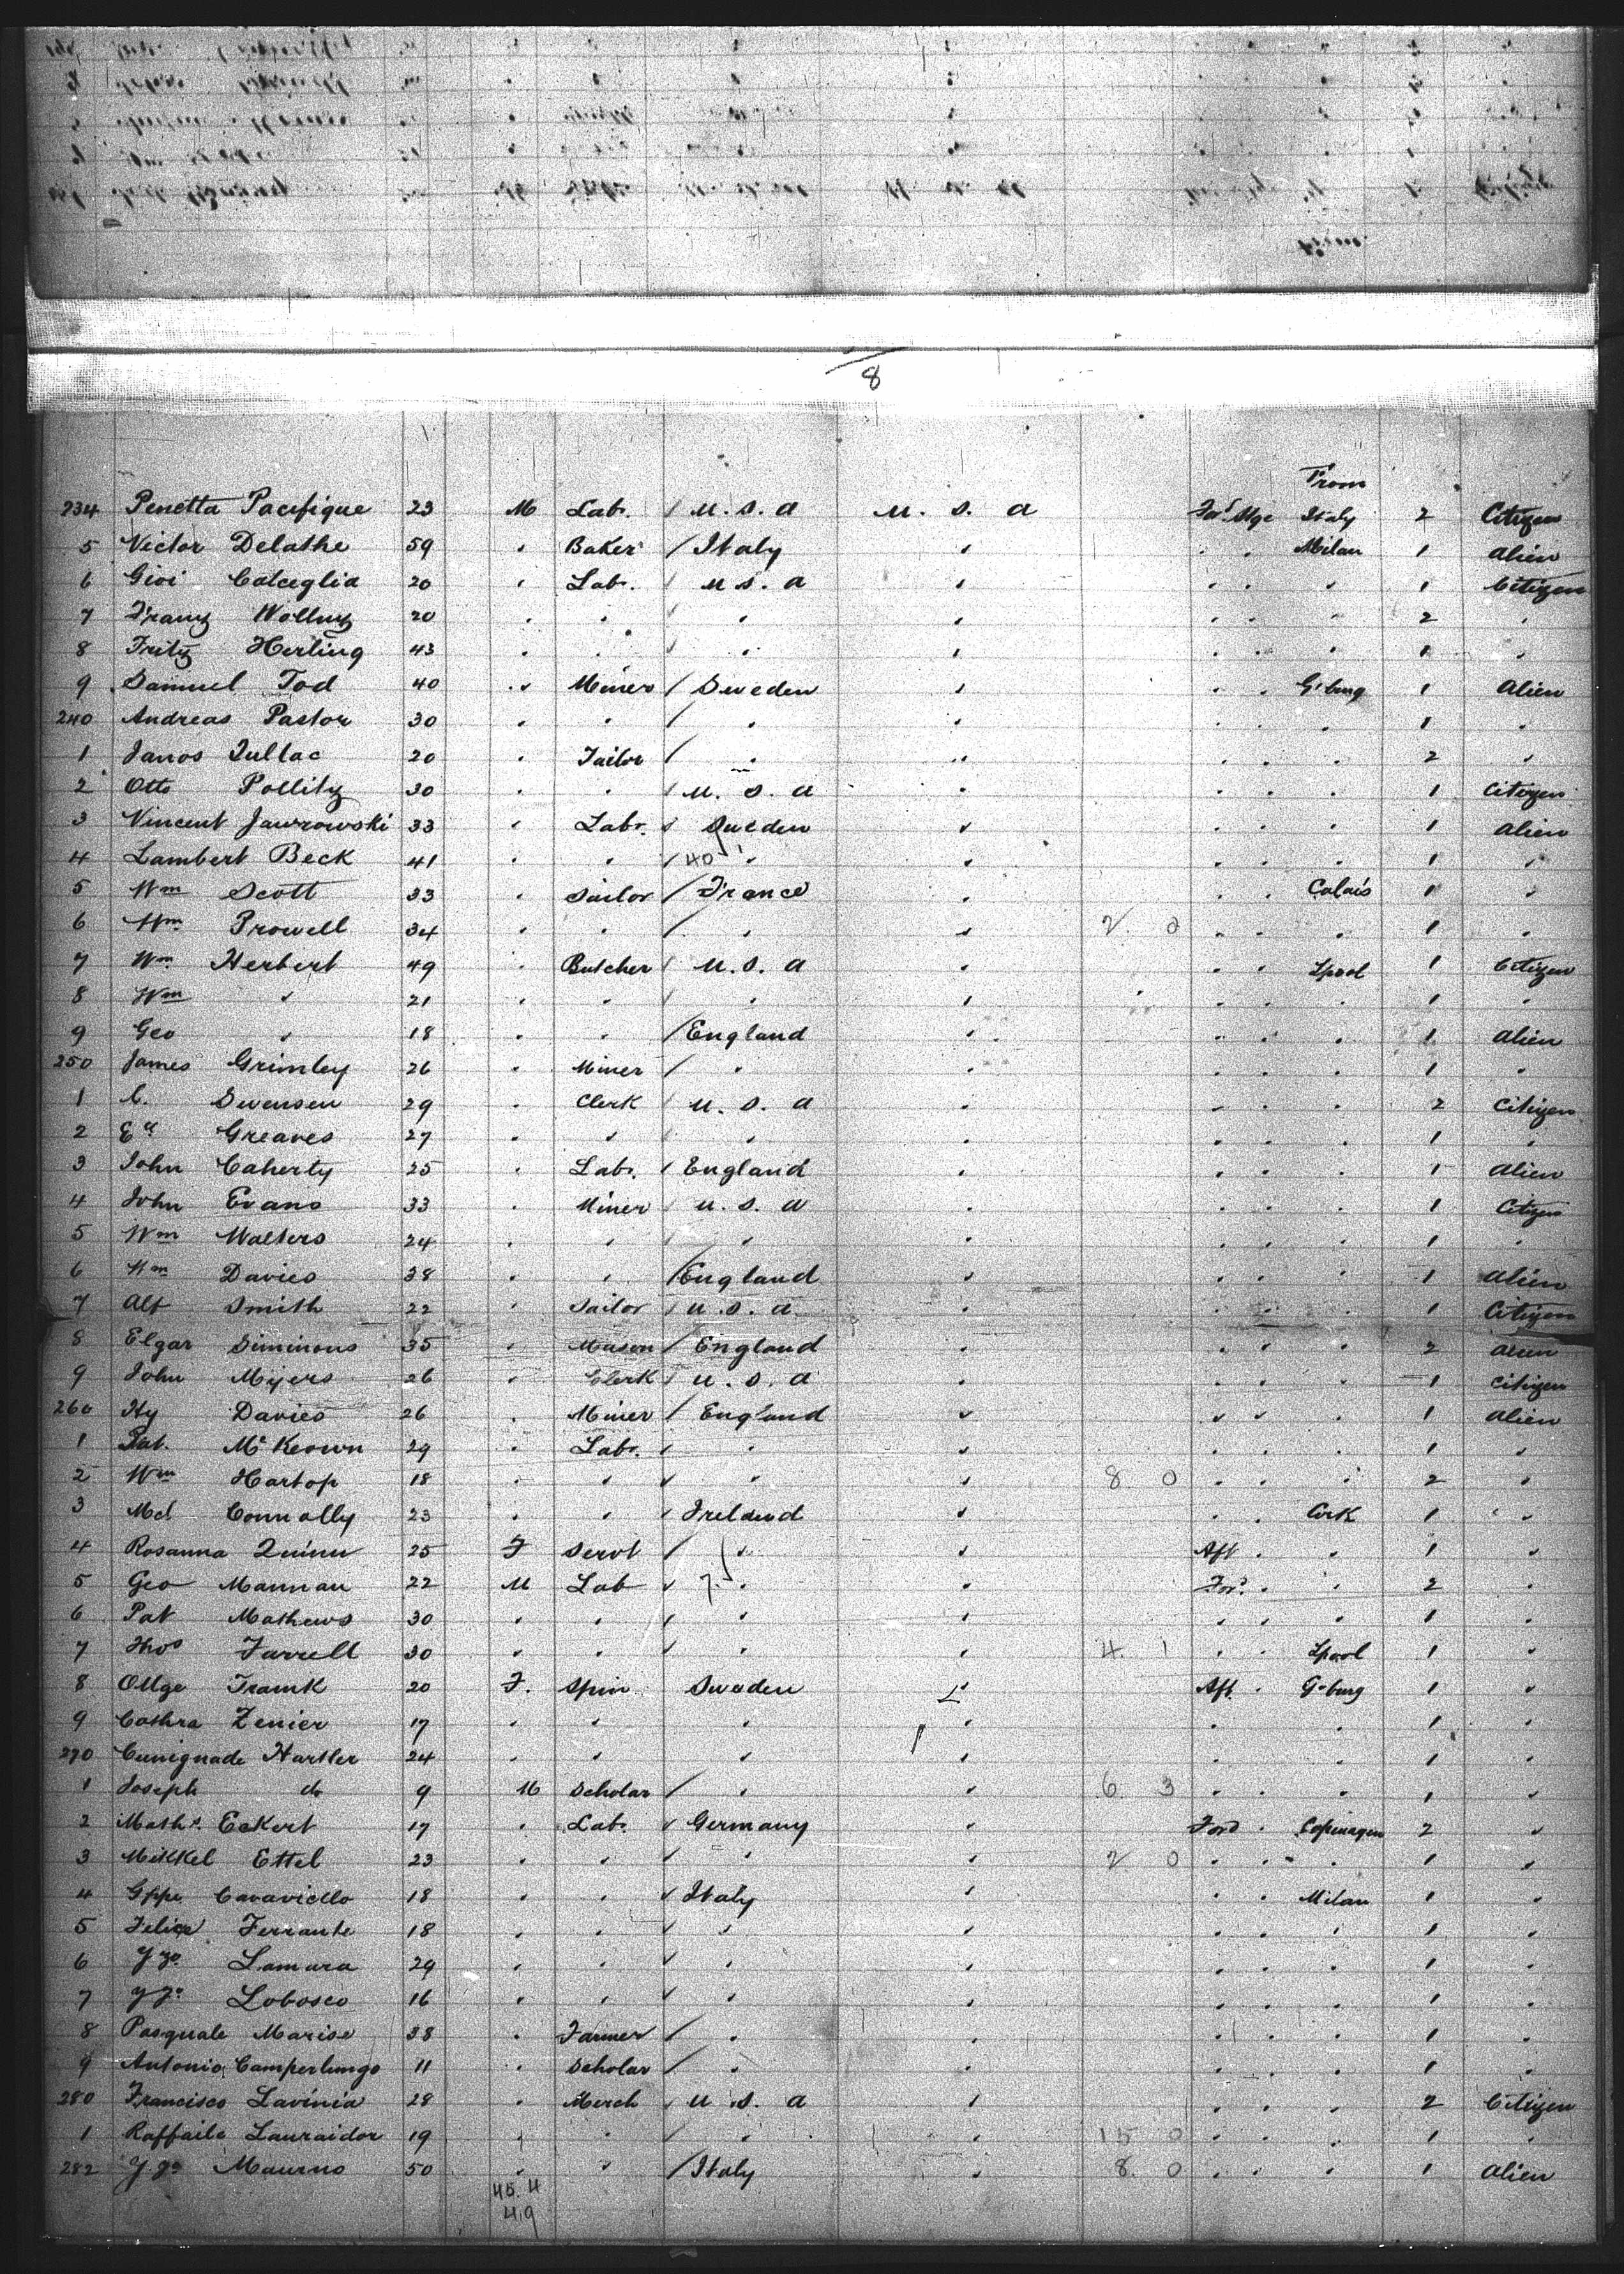 8
From
234 Penetta Pacifique 23 M Lab. / U.S.A U. S. A For'd Stge Italy 2 Citizen
5 Victor Delathe 59 " Baker / Italy " " " Milan 1 Alien
6 Giovi Calceglia 20 " Lab. / U.S.A " " " " 1 Citizen
7 Franz Wollny 20 " " " " " " " 2 "
8 Fritz Herling 43 " " / " " " " " 1 "
9 Samuel Tod 40 " Miner / Sweden " " " G'burg 1 Alien
240 Andreas Pastor 30 " " / " " " " " 1 "
1 Janos Jullac 20 " Tailor / " " " " " 2 "
2 Otto Pollitz 30 " " / U. S. A " " " " 1 Citizen
3 Vincent Jawrowski 33 " Labr. / Sweden " " " " 1 Alien
4 Lambert Beck 41 " " / 40 " " " " " 1 "
5 Wm Scott 33 " Sailor / France " " " Calais 1 "
6 Wm Prowell 34 " " / " " 2. 0 " " " 1 "
7 Wm Herbert 49 " Butcher / U.S.A " " " Lpool 1 Citizen
8 Wm " 21 " " / " " " " " 1 "
9 Geo " 18 " " / England " " " " 1 Alien
250 James Grimley 26 " Miner / " " " " " 1 "
1 C. Swensen 29 " Clerk / U. S. A " " " " 2 Citizen
2 Ed Greaves 27 " " / " " " " " 1 "
3 John Caherty 25 " Labr. / England " " " " 1 Alien
4 John Evans 33 " Miner / U. S. A " " " " 1 Citizen
5 Wm Walters 24 " " / " " " " " 1 "
6 Wm Davies 38 " " / England " " " " 1 Alien
7 Alf Smith 22 " Sailor / U.S.A " " " " 1 Citizen
8 Elgar Siminous 35 " Mason / England " " " " 2 Alien
9 John Myers 26 " Clerk / U.S.A " " " " 1 Citizen
260 Hy Davies 26 " Miner / England " " " " 1 Alien
1 Pat. McKeown 29 " Labr. / " " " " " 1 "
2 Wm Hartop 18 " " / " " 8. 0 " " " 2 "
3 Mcl Connolly 23 " " / Ireland " " " Cork 1 "
4 Rosanna Quinn 25 F Servt / " " Aft " " 1 "
5 Geo Mannan 22 M Lab / 7. " " Ford. " " 2 "
6 Pat Mathews 30 " " / " " " " " 1 "
7 Thos Farrell 30 " " / " " 4. 1 " " Lpool 1 "
8 Ollga Tramk 20 F. Spin Sweden " Aft. " G'burg 1 "
9 Cathra Zenier 17 " " " " " " " 1 "
270 Cunignade Hartler 24 " " " " " " " 1 "
1 Joseph do 9 M Scholar / " " 6. 3 " " " 1 "
2 Maths. Eckert 17 " Labr. / Germany " Ford " Copenagen 2 "
3 Mikkel Ettel 23 " " / " " 2 0 " " " 1 "
4 Gppe Cavaviello 18 " " / Italy " " " Milan 1 "
5 Felice Ferrante 18 " " / " " " " " 1 "
6 Lamura 29 " " / " " " " " 1 "
7 Lobosco 16 " " / " " " " " 1 "
8 Pasquale Marise 38 " Farmer / " " " " " 1 "
9 Antonio Camperlungo 11 " Scholar / " " " " " 1 "
280 Francisco Lavinia 28 " Merch / U. S. A " " " " 2 Citizen
1 Raffaile Lauraidor 19 " " / " " 15 0 " " " 1 "
282 Maurno 50 " " / Italy " 8. 0 " " " 1 Alien
45. 4
49